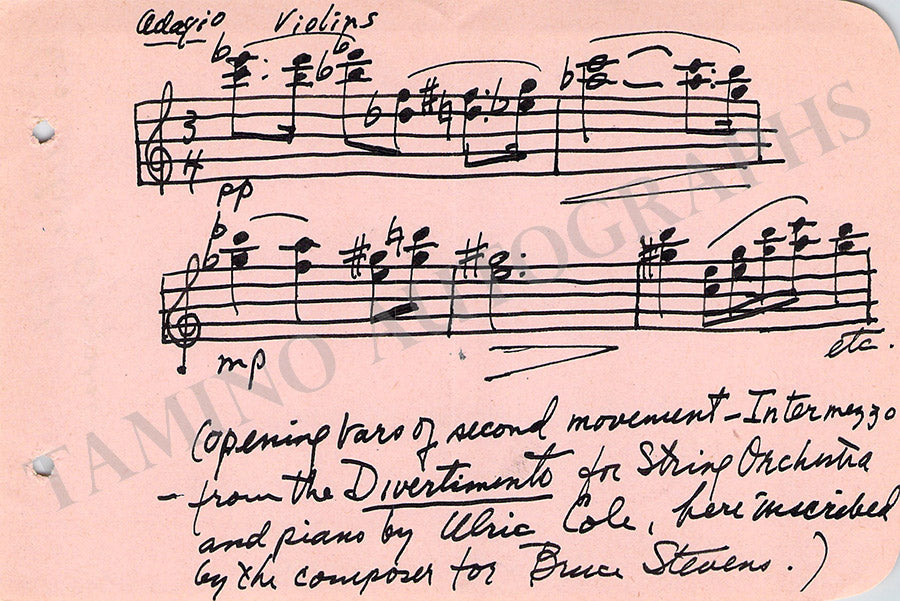 Adagio Violins
3
4
pp
mp
etc.
TAMINO AUTOGRAPHS
(opening bars of second movement – Intermezzo
– from the Divertimento for String Orchestra
and piano by Ulric Cole, here inscribed
by the composer for Bruce Stevens.)